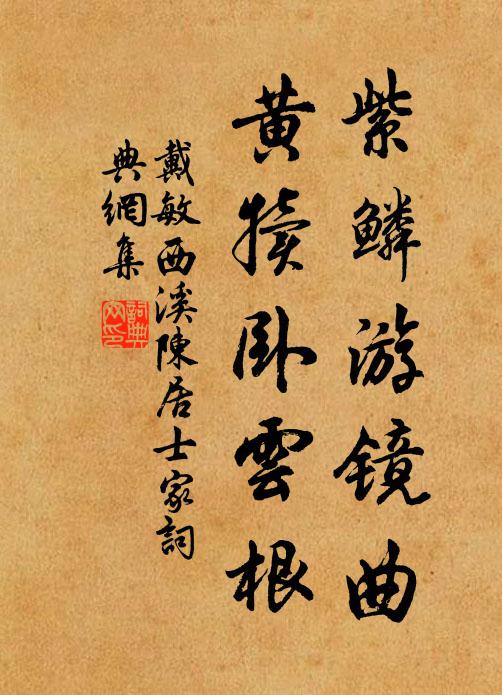 紫鳞游镜曲
黄犊卧雲根
戴敏西溪陳居士家詞
典網集
詞典网印